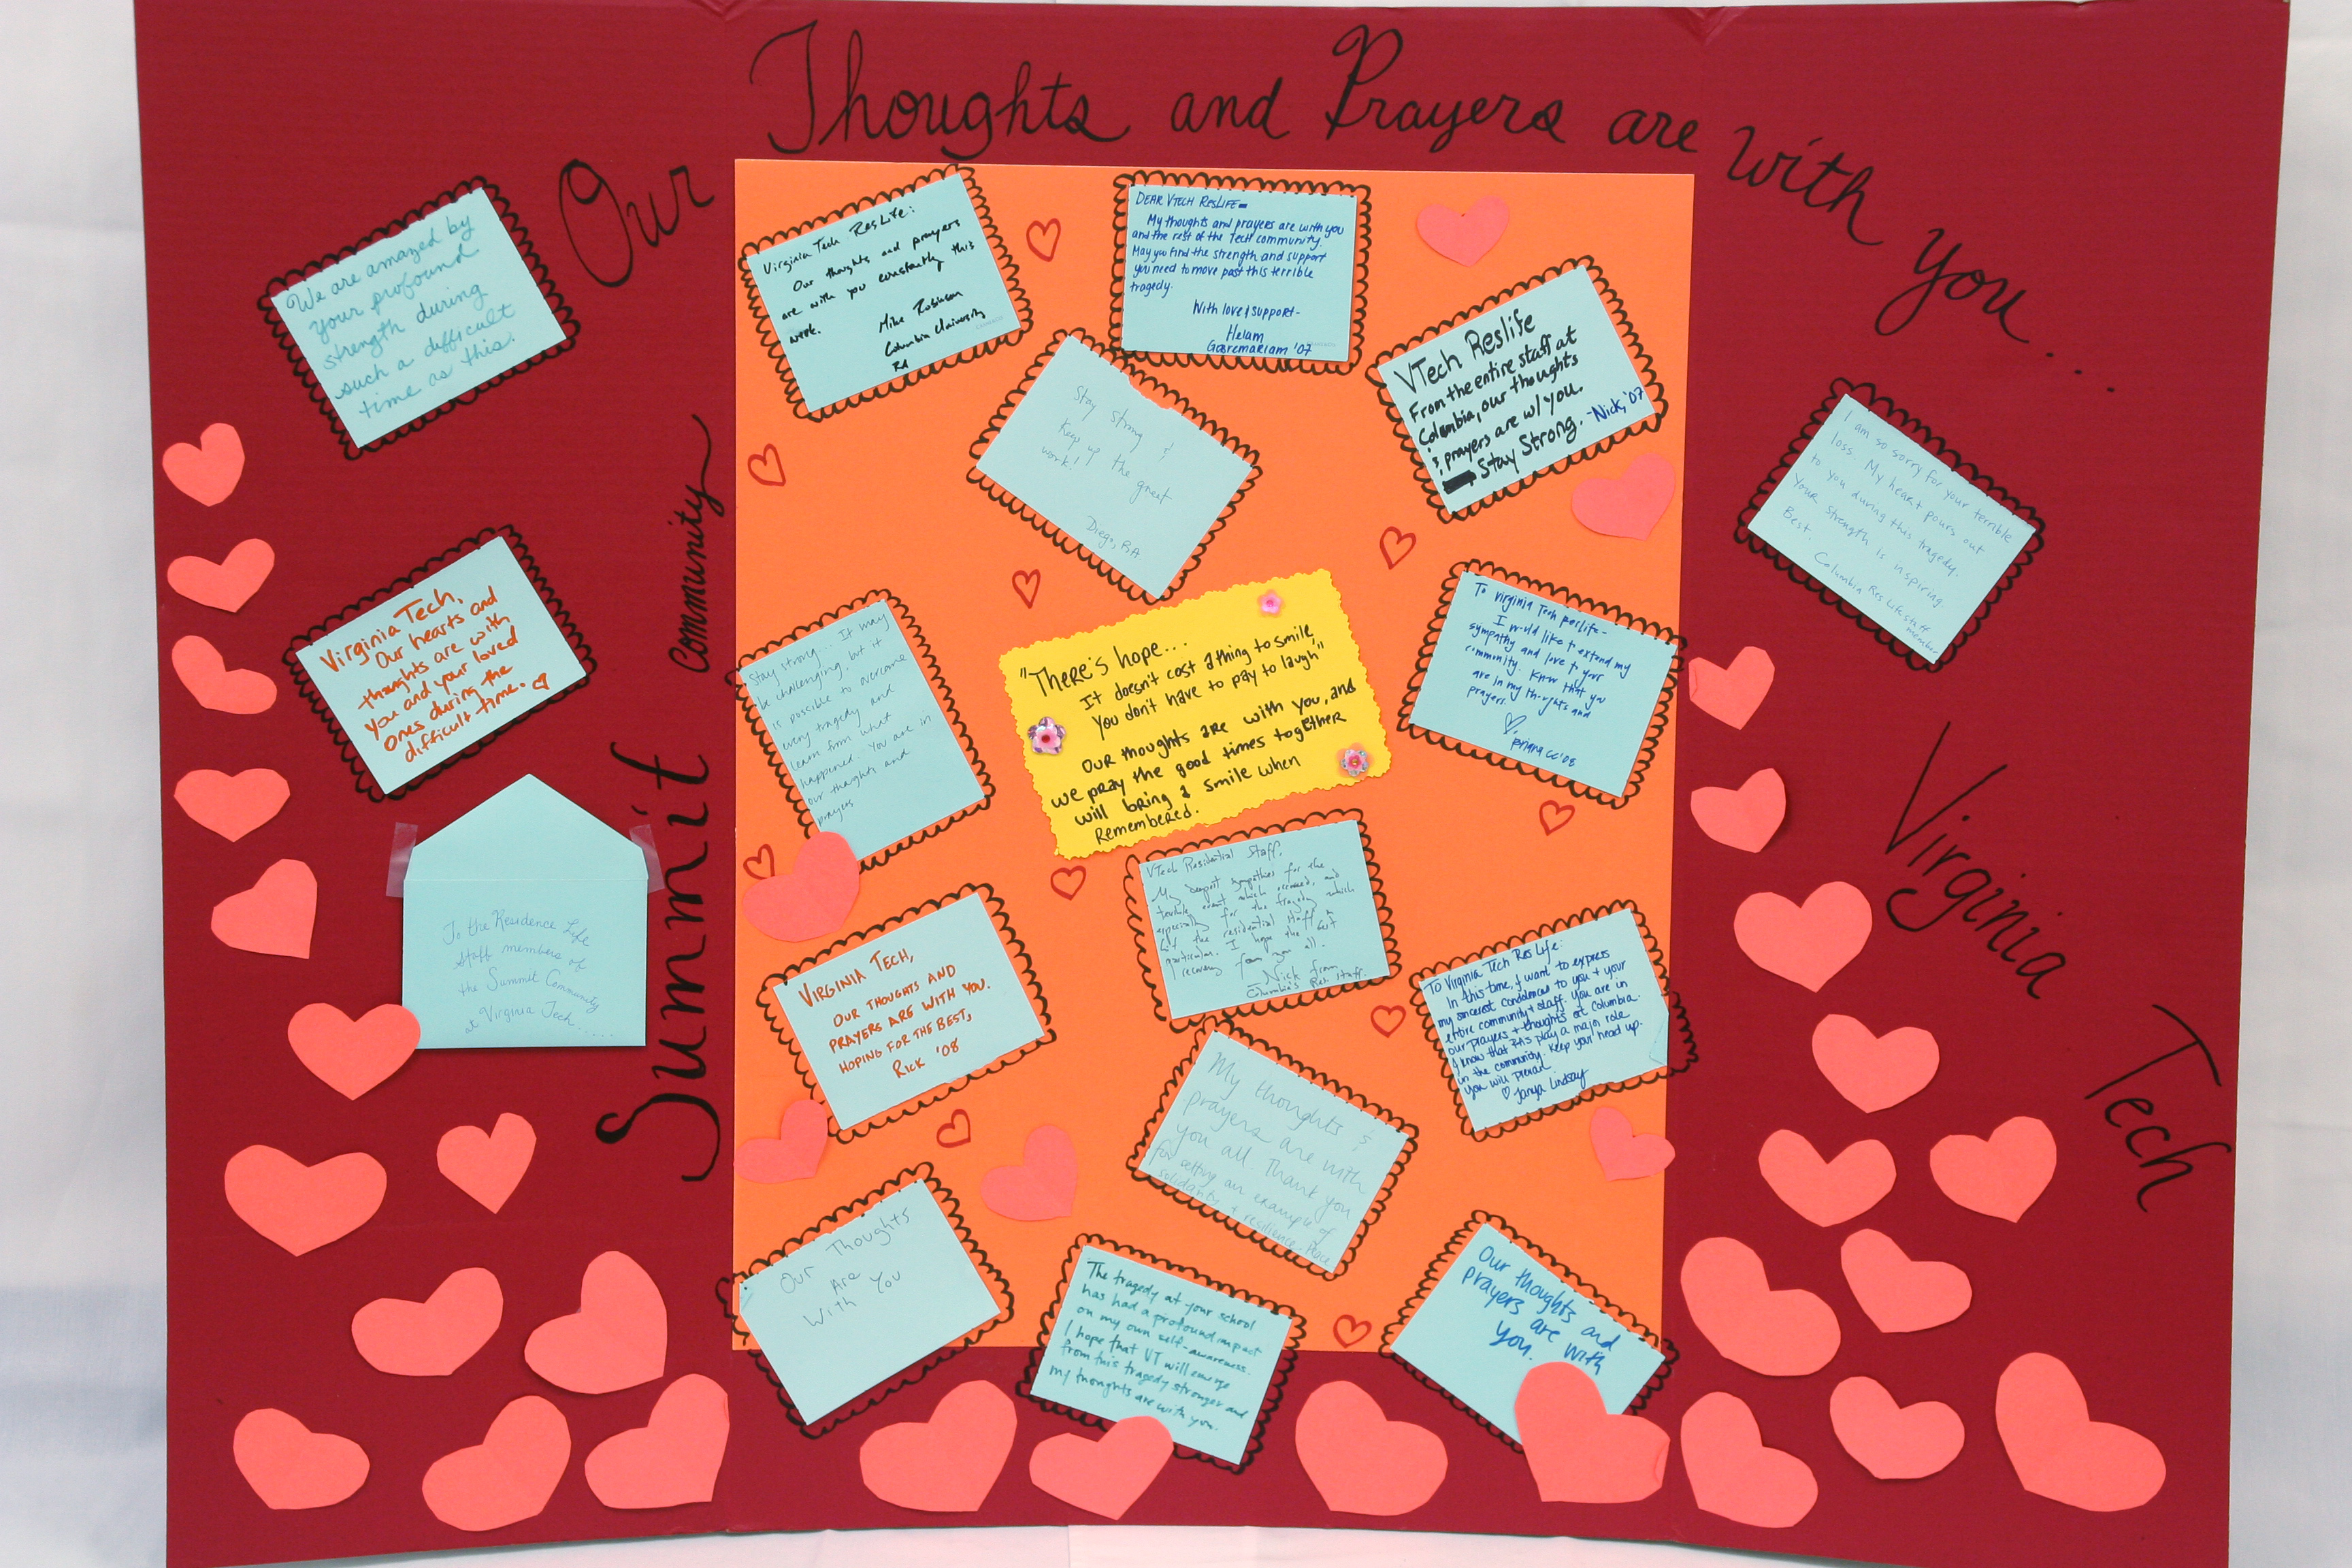 Our Thoughts and Prayers are with you...
Summit Community
Virginia Tech
We are amazed by
your profound
strength during
such a difficult
time as this.
Virginia Tech,
Our hearts and
thoughts are with
you and your loved
ones during the
difficult time.
To the Residence Life
Staff members of
the Summit Community
at Virginia Tech.....
Virginia Tech ResLife:
Our thoughts and prayers
are with you constantly this
week.
Mike Robinson
Columbia University
RA
DEAR VTECH RESLIFE-
My thoughts and prayers are with you
and the rest of the Tech community.
May you find the strength and support
you need to move past this terrible
tragedy.
With love & support-
Helam
Gebremariam '07
VTech Reslife
From the entire staff at
Columbia, our thoughts
& prayers are w/ you.
Stay Strong. -Nick, '07
Stay strong &
keep up the great
work!
Diego, RA
I am so sorry for your terrible
loss. My heart pours out
to you during this tragedy.
Your strength is inspiring
Best,
Columbia Res Life staff
member
Stay strong... It may
be challenging, but it
is possible to overcome
every tragedy and
learn from what
happened. You are in
our thoughts and
prayers
"There's hope...
It doesn't cost a thing to smile,
You don't have to pay to laugh"
Our thoughts are with you, and
we pray the good times together
will bring a smile when
Remembered.
To Virginia Tech Reslife-
I would like to extend my
sympathy and love to your
community. Know that you
are in my thoughts and
prayers.
Briana CC'08
VTech Residential Staff,
My deepest sympathies for the
terrible event which occurred, and
especially for the tragedy which
hit the residential staff in
particular. I hope the best
recovery for you all.
Nick from
Columbia's Res. Staff.
VIRGINIA TECH,
OUR THOUGHTS AND
PRAYERS ARE WITH YOU.
HOPING FOR THE BEST,
RICK '08
To Virginia Tech Res Life:
In this time, I want to express
my sincerest condolences to you + your
entire community + staff. You are in
our prayers + thoughts at Columbia.
I know that RAs play a major role
in the community. Keep your head up.
You will prevail.
Tanya Lindsay
My thoughts &
prayers are with
you all. Thank you
for setting an example of
solidarity + resilience. Peace
Our Thoughts
Are
With You
The tragedy at your school
has had a profound impact
on my own self-awareness.
I hope that VT will emerge
from this tragedy stronger and
my thoughts are with you.
Our thoughts and
prayers are with
you.